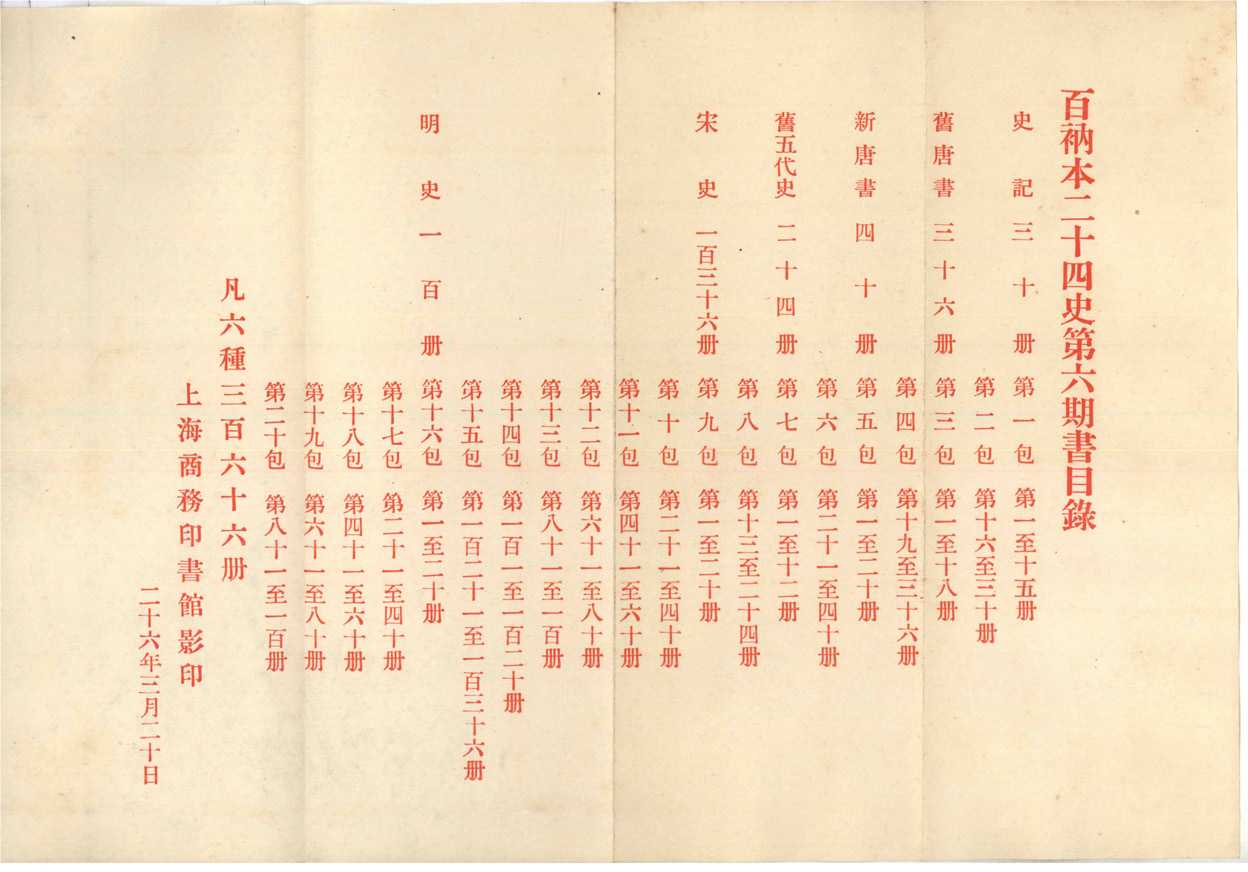 百衲本二十四史第六期書目錄
史記三十册 第一包 第一至十五册
第二包 第十六至三十册
舊唐書三十六册 第三包 第一至十八册
第四包 第十九至三十六册
新唐書四十册 第五包 第一至二十册
第六包 第二十一至四十册
舊五代史二十四册 第七包 第一至十二册
第八包 第十三至二十四册
宋史一百三十六册 第九包 第一至二十册
第十包 第二十一至四十册
第十一包 第四十一至六十册
第十二包 第六十一至八十册
第十三包 第八十一至一百册
第十四包 第一百一至一百二十册
第十五包 第一百二十一至一百三十六册
明史一百册 第十六包 第一至二十册
第十七包 第二十一至四十册
第十八包 第四十一至六十册
第十九包 第六十一至八十册
第二十包 第八十一至一百册
凡六種三百六十六册
上海商務印書館影印
二十六年三月二十日